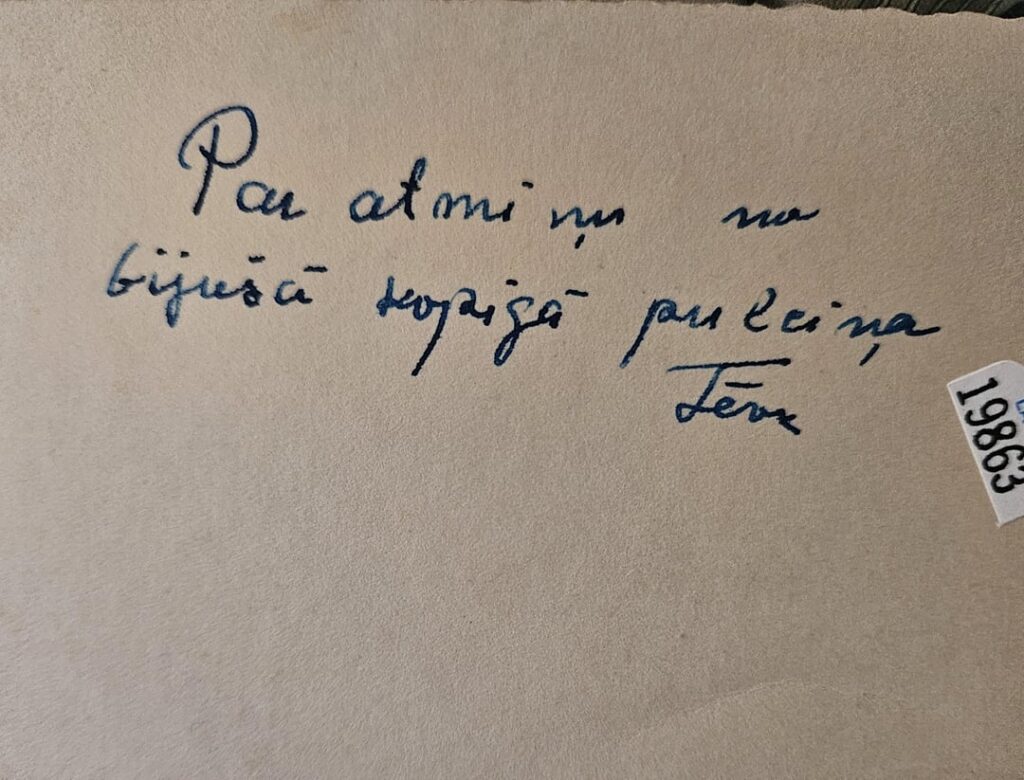 Par atmiņu no
bijušā kopigā pulciņa
Tēvs
19863